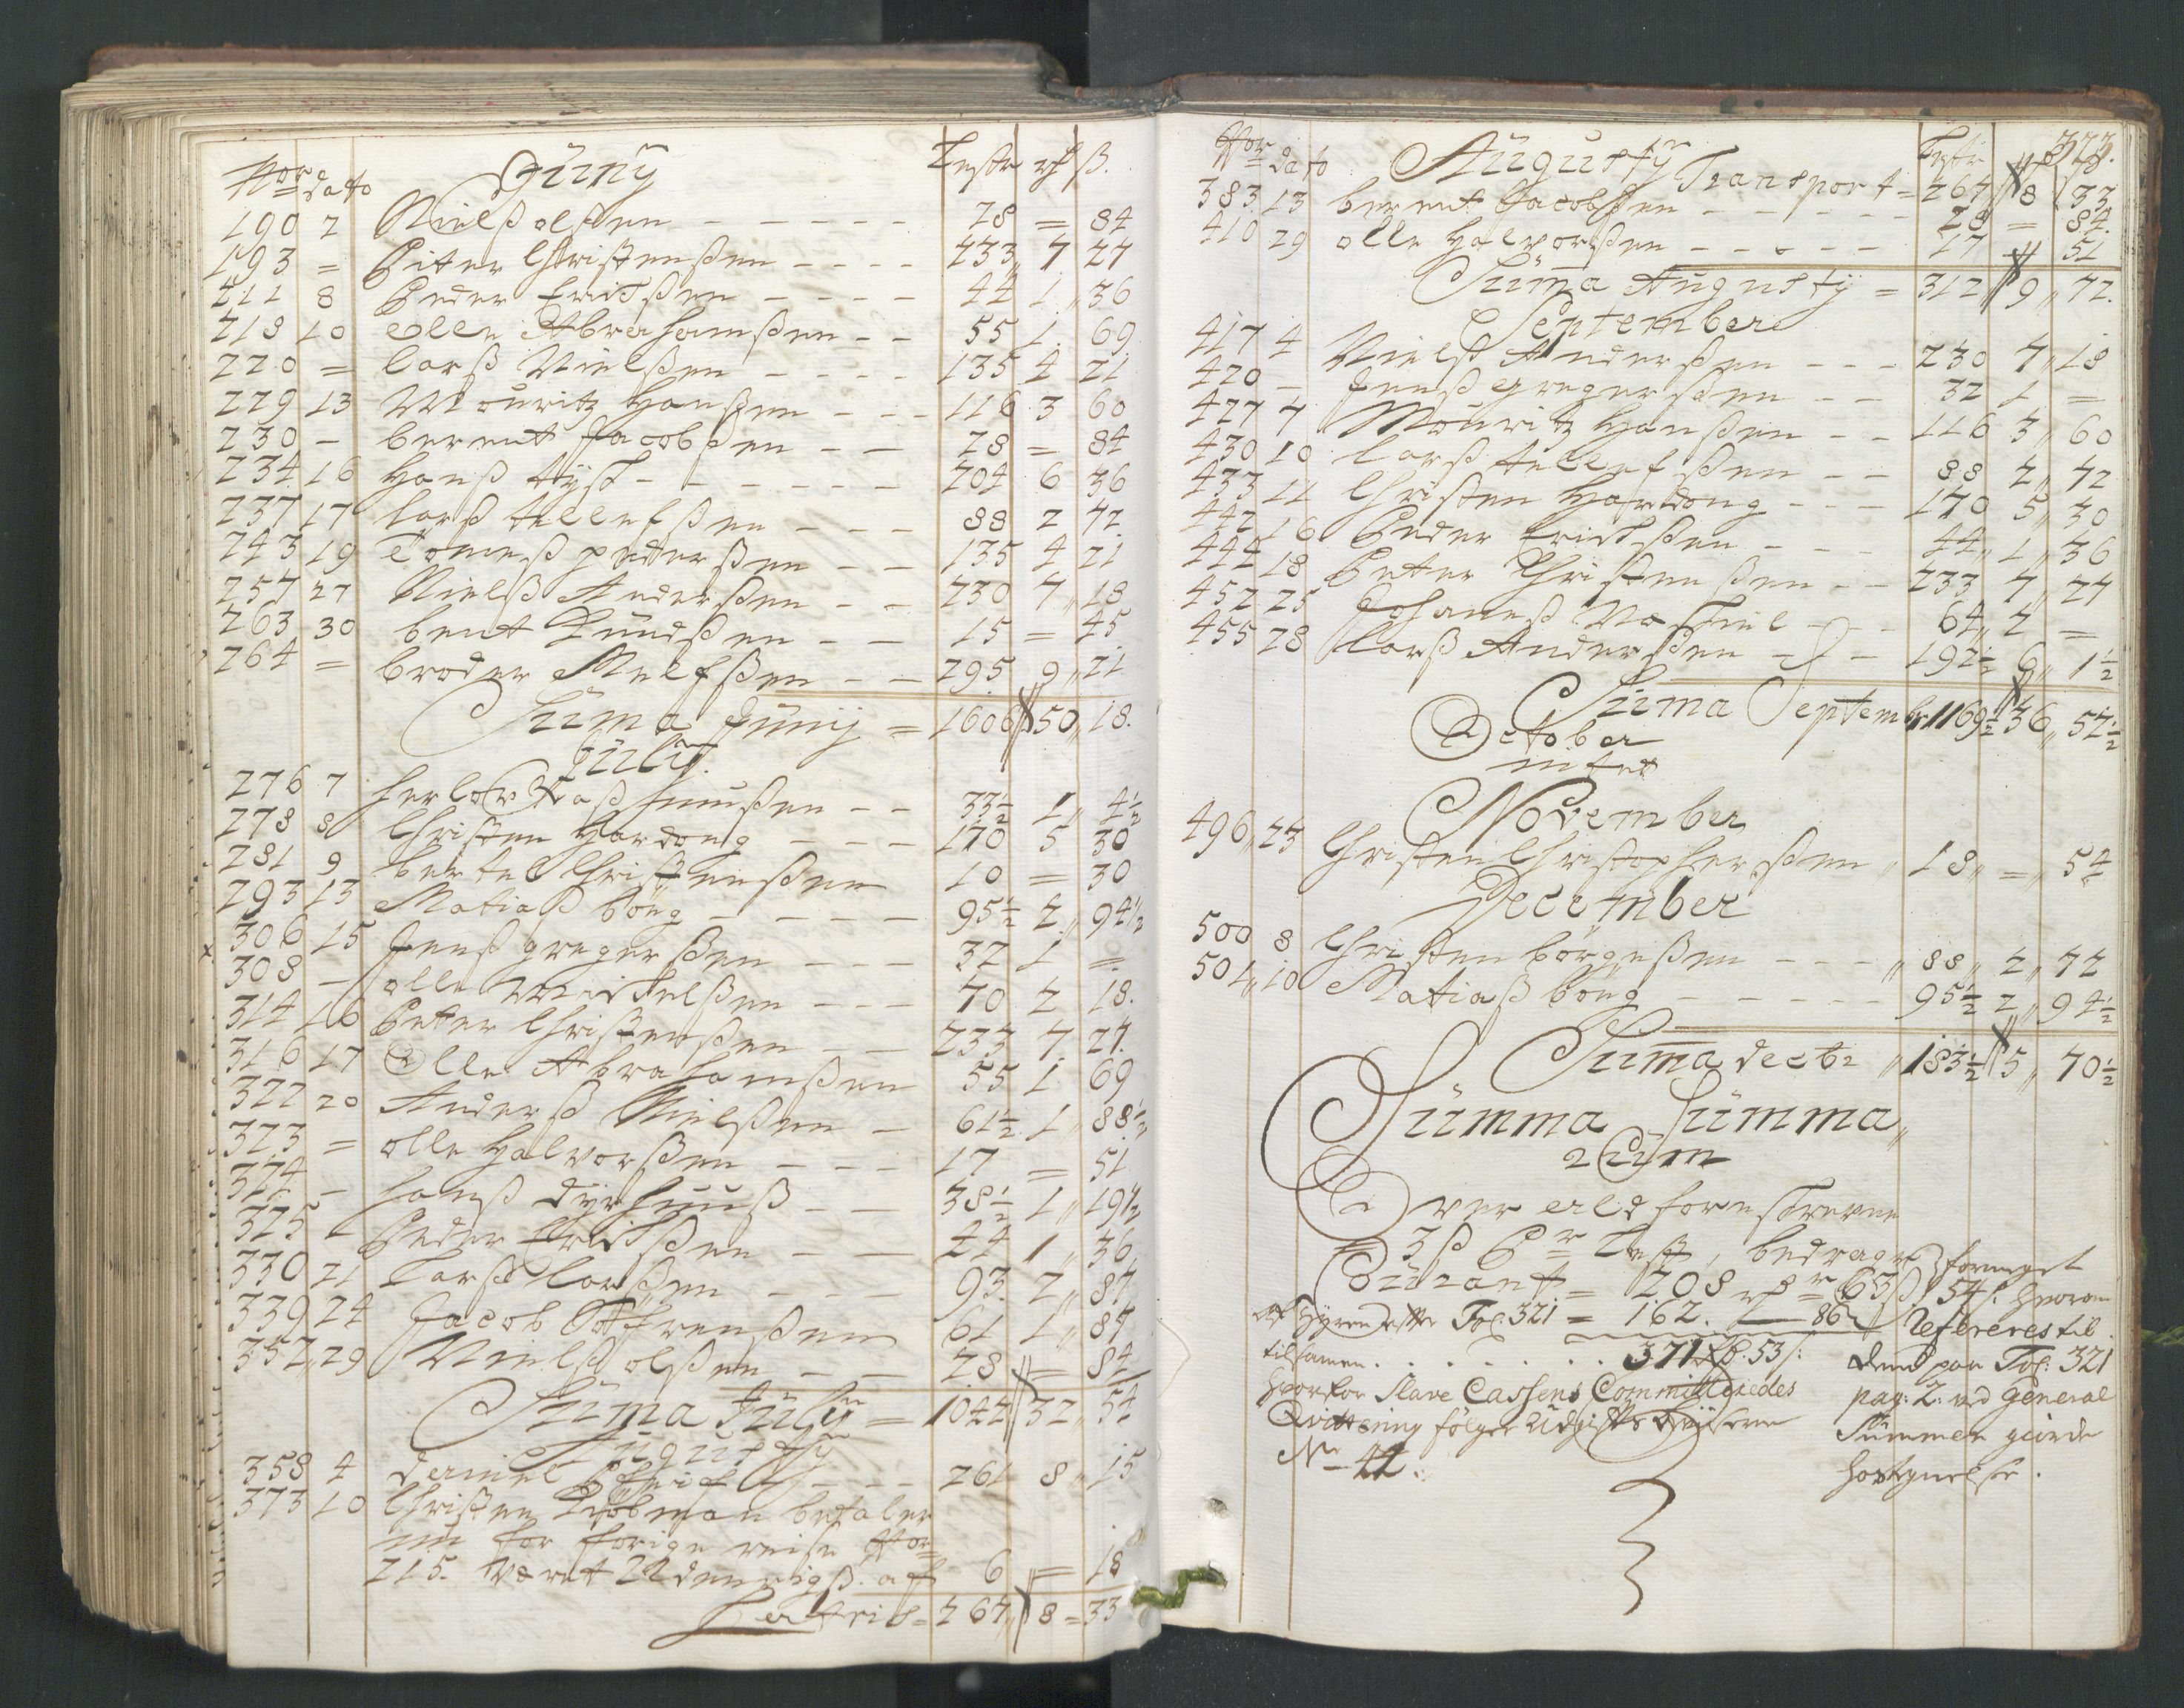 Nor dato Juny Lester rf ß.
190 2 Nielß olßen - - - - - 28 = 84
193 = Piter Christenßen - - - - 233 7 27
211 8 Peder Erichßen - - - - 44 1 36
218 10 olle Abrahamßen - - 55 1 69
220 = larß Nielßen - - - - 135 4 21
229 13 Mouritz Hanßen - - - 116 3 60
230 - berent Jacobßen - - 28 = 84
234 16 Hanß tÿsk - - - - - - 204 6 36
237 17 larß tellefßen - - - 88 2 72
243 19 Tomeß pederßen - - 135 4 21
257 27 Nielß Anderßen - - 230 7 18
263 30 bent Knudßen - - 15 = 45
264 = broder Melfßen - - 295 9 21
Suma Junij = 1606 50 18.
July
276 7 - - 33½ 1 4½
278 8 Christen Hardong - - - 170 5 30
281 9 bertel Christenßen 10 = 30
293 13 Matiaß bong - - - - 95½ 2 94½
306 15 Jenß gregerßen - - - 32 1 =
308 - olle Michelßen - - - 70 2 18.
314 16 Peter Christenßen - - 233 7 27.
316 17 Olle Abrahamßen 55 1 69
322 20 Anderß Nielßen - 61½ 1 88½
323 = olle Halvorßen - - - 17 = 51
324 - hanß dÿrhuuß - - 38½ 1 19½
325 - Peder Erichßen - - 44 1 36
330 21 Larß larßen - - - 93. 2 87
339 24 Jacob 61 1 87
352 29 Nielß olßen - - 28 = 84
Suma July = 1044 32 54
Augusty
358 4 daniel - - - 261 8 15
373 10 Christen betaler
for forige reise Nor
215. været 22 af 6 = 18
Latris = 267 8 = 33
373.
Nor dato Augusty Lester rf ß
Transport = 267 8 33
383 13 berent Jacobßen - - - - - 28 = 84.
410 29 olle Halvorßen - - - - - 17 = 51
Suma Augusty = 312 9 72.
September
417 4 Nielß Anderßen - - - 230 7 18
420 - Jenß gregerßen - - 32 1 =
427 7 Mouritz Hanßen - - 116 3 60
430 10 larß tellefßen - - 88 2 72
433 11 Christen Hardong - - - 170 5 30
442 16 Peder Erichßen - - - 44 1 36
444 18 Peter Christenßen - - 233 7 27
452 25 Johaneß - - 64 2 =
455 28 larß Anderßen - - 192½ 6 1½
Suma September 1169½ 36 57½
October
intet
November
496 23 Christen Christopherßen 18 = 54
December
500 8 Christen börgeßen - - - 88 2 72
501 10 Matiaß bong - - - - - 95½ 2 94½
Suma decbr 183½ 5 70½
Summa Summa
rum
Over alld forestrevne
3ß Pr Lest, bedrager
Courant = 208 rf 63 ß
Fol: 321 = 162. - 86
tilsamen. . . . . . . . . 371 rf. 53 ß:
Hvorfor Slave Cassens Committeredes
Qvittering følger Udgifts
No 44.
formeget
54 ß. hvorom
Refereres til
dend paa Fol: 321
pag: 2: ved General
Summen giorde